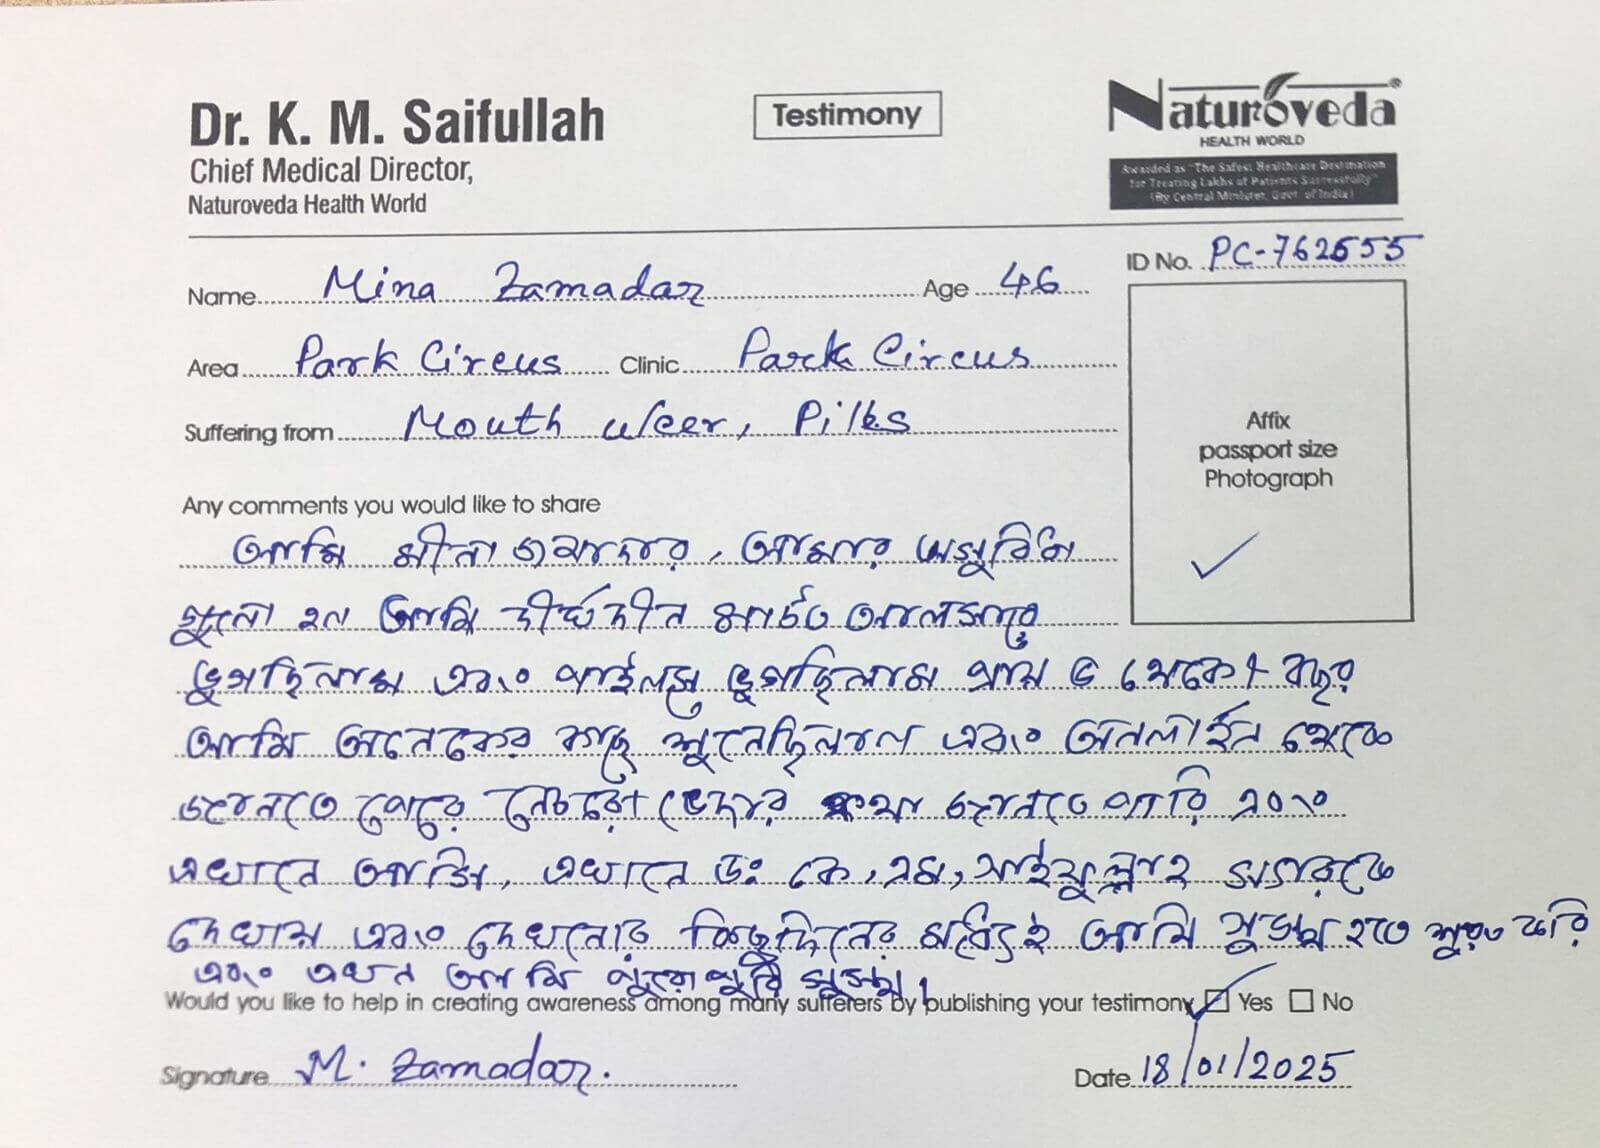 Dr. K. M. Saifullah
Chief Medical Director,
Naturoveda Health World
Testimony
Naturoveda®
HEALTH WORLD
Awarded as "The Safest Healthcare Destination
for Treating Lakhs of Patients Successfully"
(By Central Minister, Govt. of India)
ID No. PC-762555
Name Mina Zamadar Age 46
Area Park Circus Clinic Park Circus
Suffering from Mouth ulcer, Piles
Affix
passport size
Photograph
Any comments you would like to share
আমি মীনা জমাদার, আমার
হল আমি দীর্ঘদীন মাউত আলসারে
ভুগছিলাম এবং পাইলসে ভুগছিলাম প্রায় ৫ থেকে ৭ বছর
আমি অনেকের কাছে শুনেছিলাম এবং অনলাইন থেকে
জানতে পেরে নেচরো ভেদার কথা জানতে পারি এবং
এখানে আসি, এখানে ডঃ কে, এম, সাইফুল্লাহ স্যারকে
দেখায় এবং দেখানোর কিছুদিনের মধ্যেই আমি সুস্থ হতে শুরু করি
এবং এখন আমি পুরোপুরি সুস্থ।
Would you like to help in creating awareness among many sufferers by publishing your testimony Yes No
Signature M. Zamadar.
Date 18/01/2025